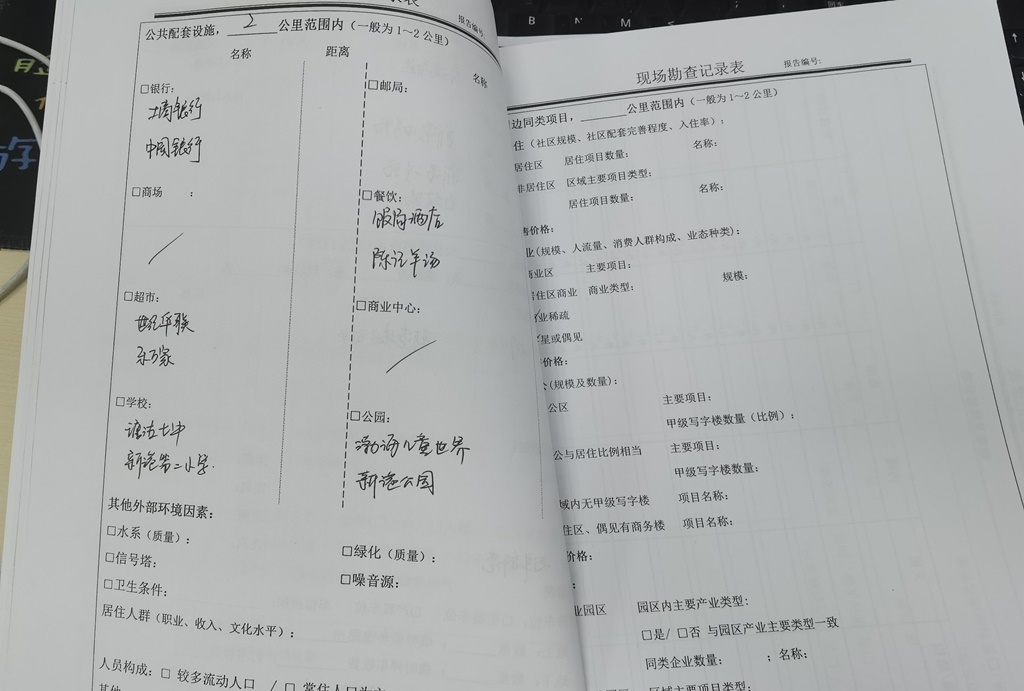 报告编号
公共配套设施，2公里范围内（一般为1～2公里）
名称 距离 名称
□银行：
工商银行
中国银行
□商场 ：
□超市：
世纪华联
乐万家
□学校：
塘沽七中
新港第二小学
□邮局：
□餐饮：
陈记羊汤
□商业中心：
□公园：
渤海儿童世界
新港公园
其他外部环境因素：
□水系（质量）：
□绿化（质量）：
□信号塔：
□噪音源：
□卫生条件：
居住人群（职业、收入、文化水平）：
人员构成：□ 较多流动人口 / □ 常住人口为主
现场勘查记录表 报告编号：
边同类项目，______公里范围内（一般为1～2公里）
住（社区规模、社区配套完善程度、入住率）：
居住区 居住项目数量： 名称：
非居住区 区域主要项目类型：
居住项目数量： 名称：
售价格：
业（规模、人流量、消费人群构成、业态种类）：
商业区 主要项目： 规模：
居住区商业 商业类型：
业稀疏
星或偶见
价格：
（规模及数量）：
公区 主要项目：
甲级写字楼数量（比例）：
公与居住比例相当 主要项目：
甲级写字楼数量：
域内无甲级写字楼 项目名称：
住区、偶见有商务楼 项目名称：
价格：
：
业园区 园区内主要产业类型：
□是/ □否 与园区产业主要类型一致
同类企业数量： ；名称：
区域主要项目类型：